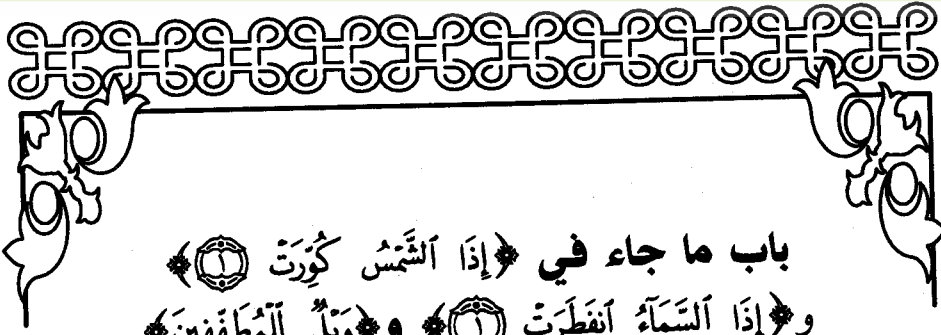 باب ما جاء في ﴿إِذَا ٱلشَّمْسُ كُوِّرَتْ ۝١﴾
و﴿إِذَا ٱلسَّمَآءُ ٱنفَطَرَتْ ۝١﴾ و﴿وَيْلٌ لِّلْمُطَفِّفِينَ﴾